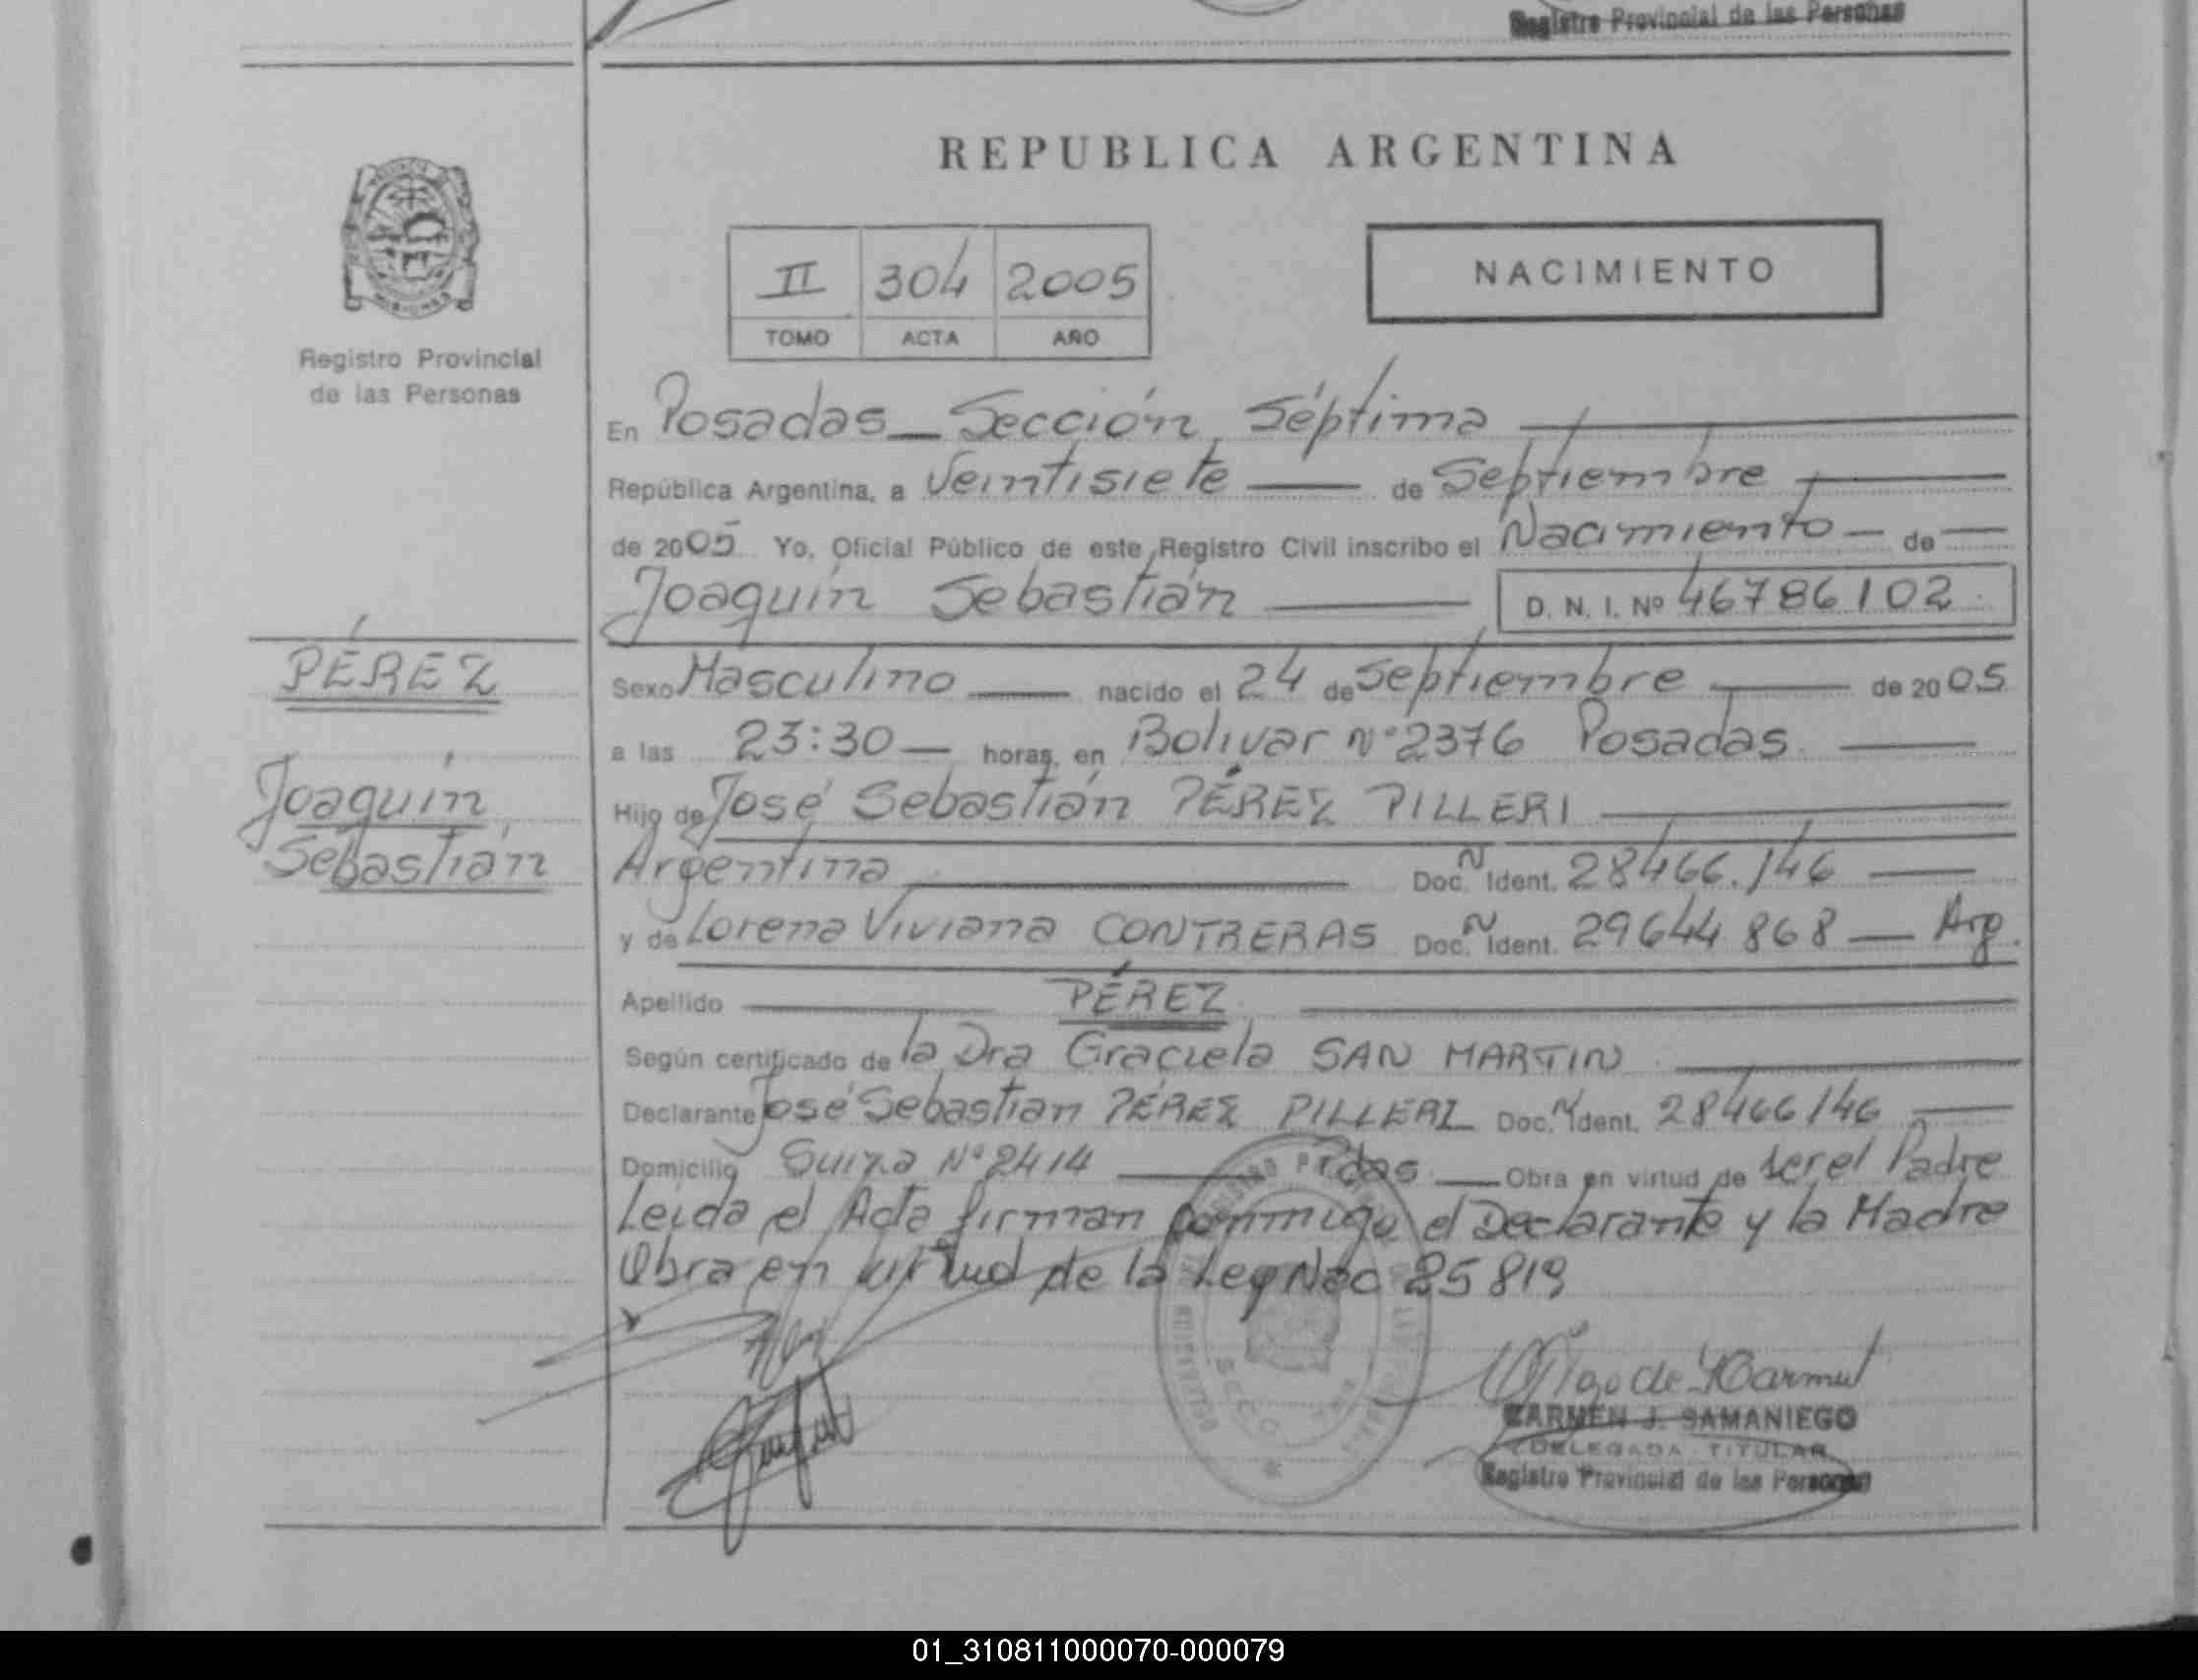 Registro Provincial de las Personas
REPUBLICA ARGENTINA
NACIMIENTO
II 304 2005
TOMO ACTA AÑO
Registro Provincial
de las Personas
En Posadas Sección Séptima
República Argentina, a Veintisiete de Septiembre
de 2005 Yo, Oficial Público de este Registro Civil inscribo el Nacimiento de
Joaquín Sebastián D. N. I. Nº 46786102
PÉREZ
Joaquín
Sebastián
Sexo Masculino nacido el 24 de Septiembre de 2005
a las 23:30 horas, en Bolivar Nº 2376 Posadas
Hijo de José Sebastián PÉREZ PILLERI
Argentina Doc. N Ident. 28466.146
y de Lorena Viviana CONTRERAS Doc. N Ident. 29644868 Arg.
Apellido PÉREZ
Según certificado de la Dra Graciela SAN MARTIN
Declarante José Sebastian PÉREZ PILLERI Doc. N Ident. 28466146
Domicilio Suiza Nº 2414 Pdas Obra en virtud de ser el Padre
Leida el Acta firman conmigo el Declarante y la Madre
Obra en virtud de la Ley Nac 25819
CARMEN J. SAMANIEGO
DELEGADA TITULAR
Registro Provincial de las Personas
01_310811000070-000079